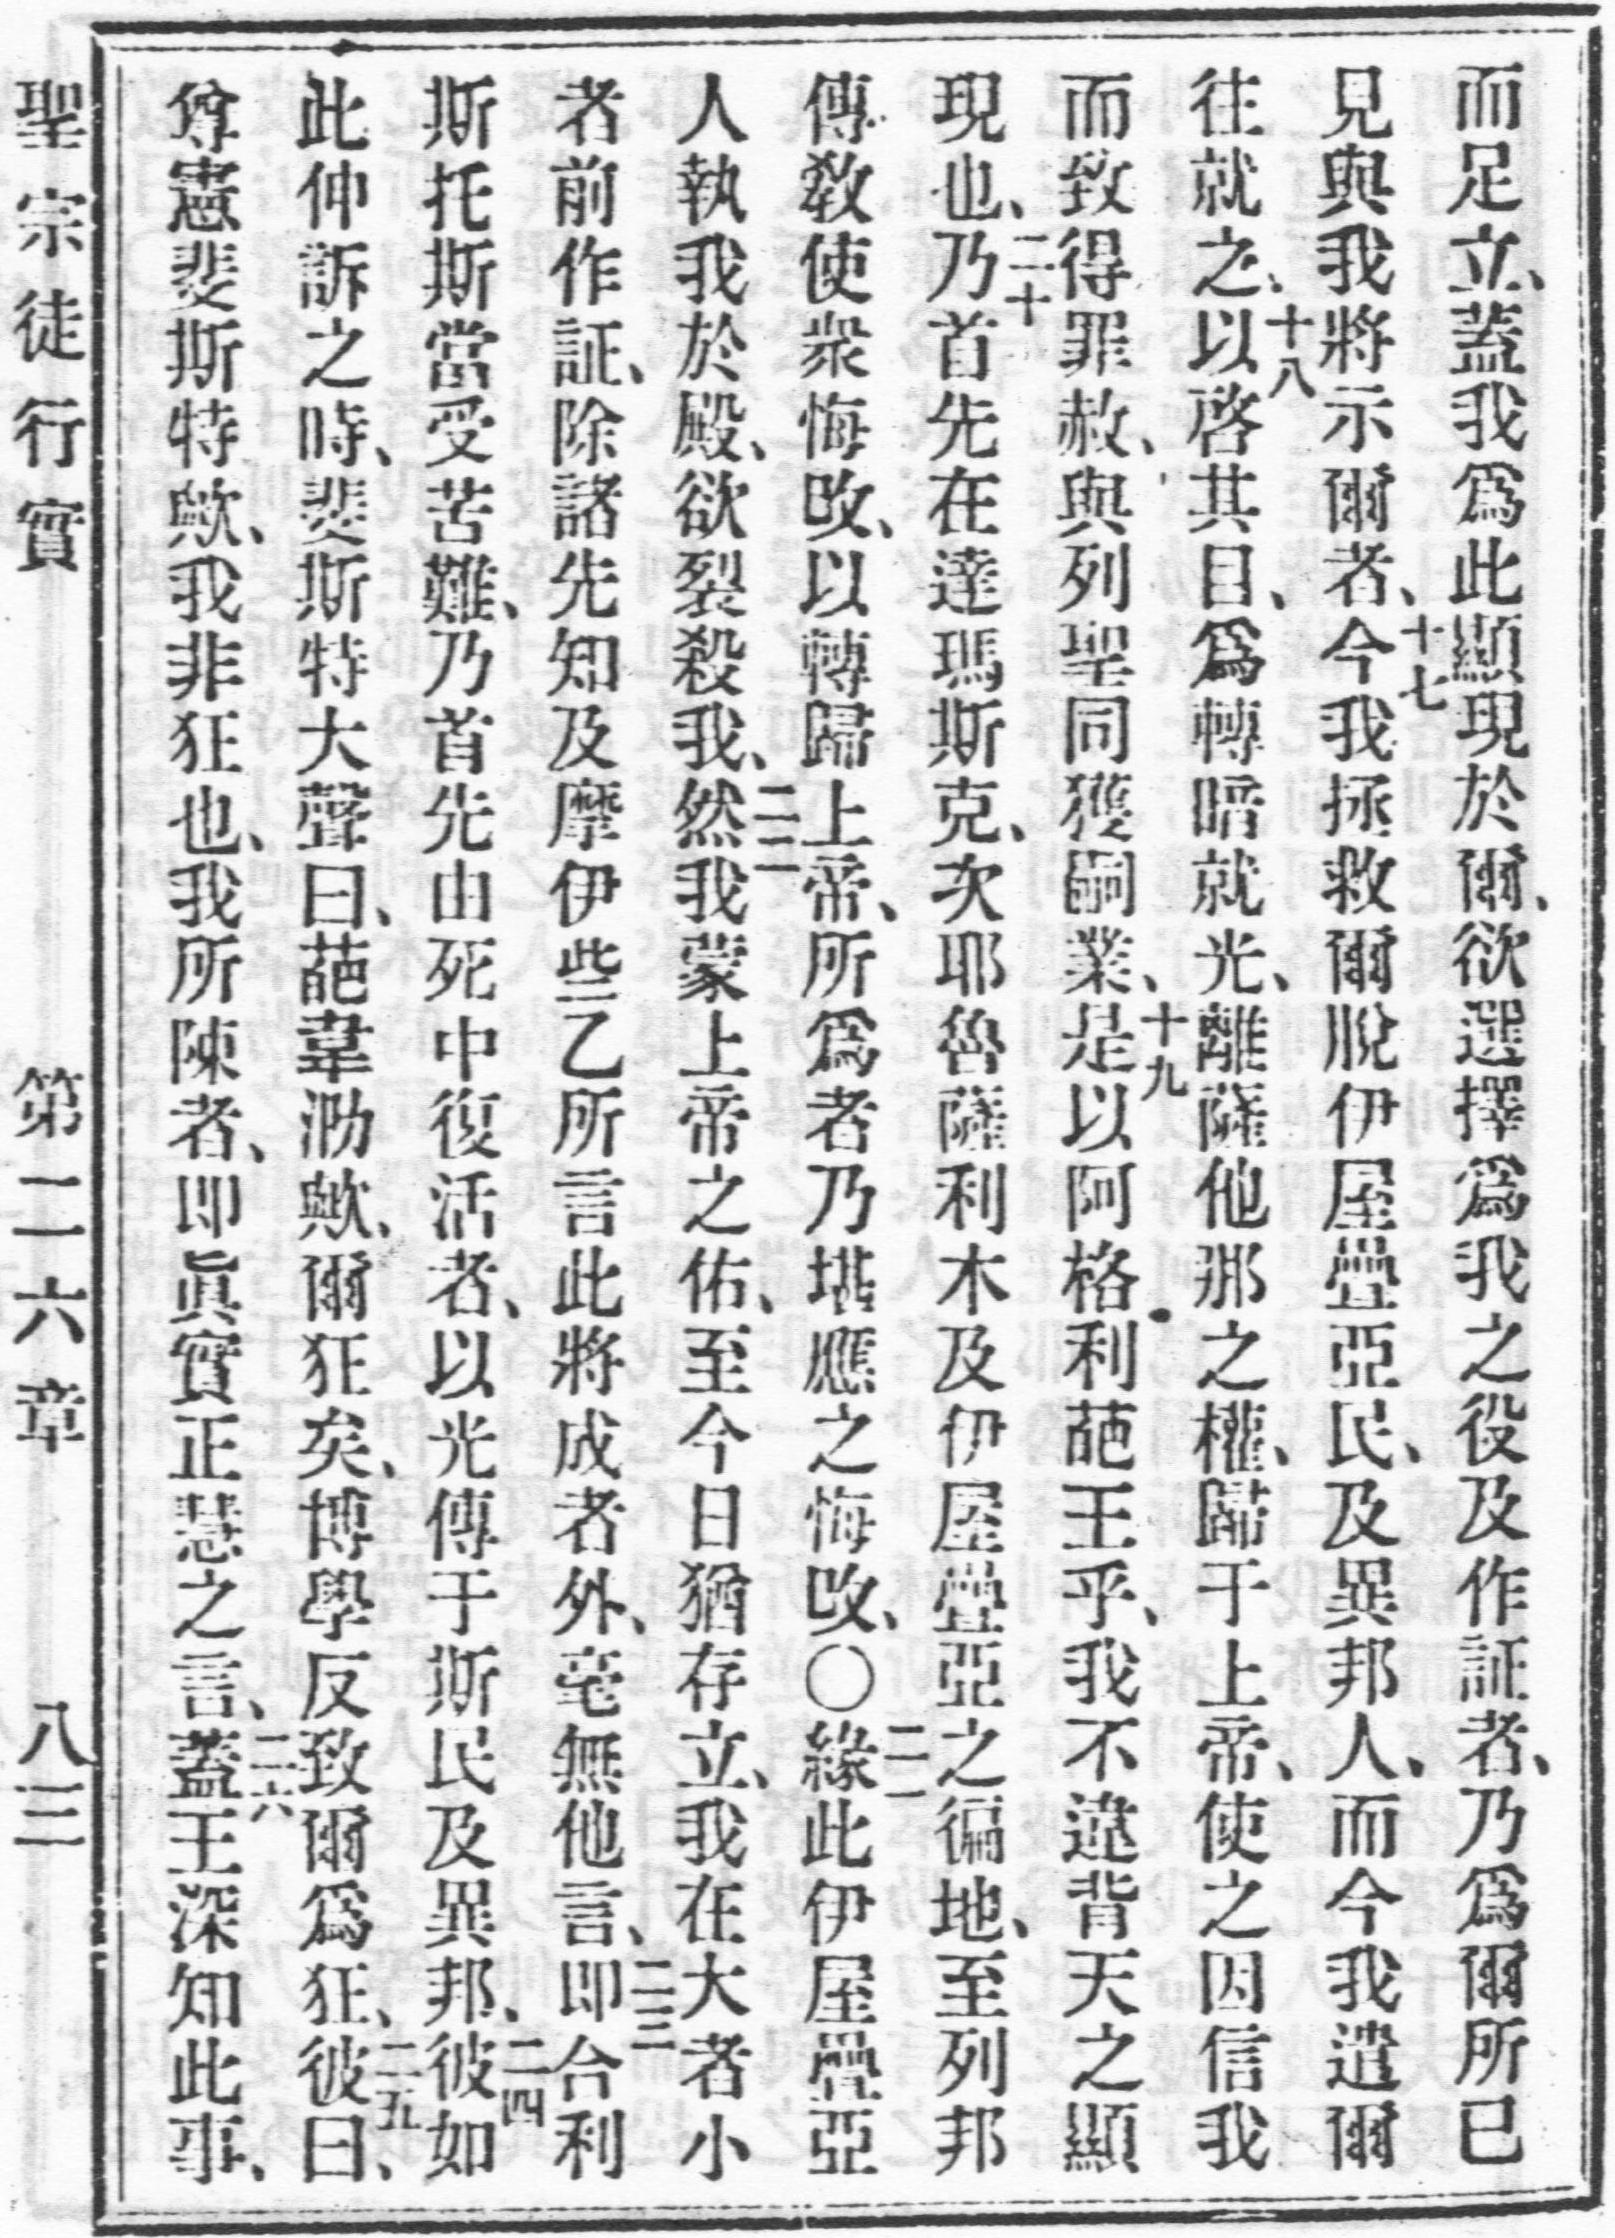 而足立、蓋我爲此顯現於爾、欲選擇爲我之役及作証者、乃爲爾所已
見與我將示爾者、十七今我拯救爾脫伊屋疊亞民、及異邦人、而今我遣爾
往就之、十八以啓其目、爲轉暗就光、離薩他那之權、歸于上帝、使之因信我
而致得罪赦、與列聖同獲嗣業、十九是以阿格利葩王乎、我不違背天之顯
現也、二十乃首先在達瑪斯克、次耶魯薩利木及伊屋疊亞之徧地、至列邦
傳教使衆悔改、以轉歸上帝、所爲者乃堪應之悔改、〇二一緣此伊屋疊亞
人執我於殿、欲裂殺我、二二然我蒙上帝之佑、至今日猶存立、我在大者小
者前作証、除諸先知及摩伊些乙所言此將成者外、毫無他言、二三即合利
斯托斯當受苦難、乃首先由死中復活者、以光傳于斯民及異邦、二四彼如
此伸訴之時、斐斯特大聲曰、葩韋泐歟、爾狂矣、博學反致爾爲狂、二五彼曰、
尊憲斐斯特歟、我非狂也、我所陳者、即眞實正慧之言、二六蓋王深知此事、
聖宗徒行實 第二六章 八三